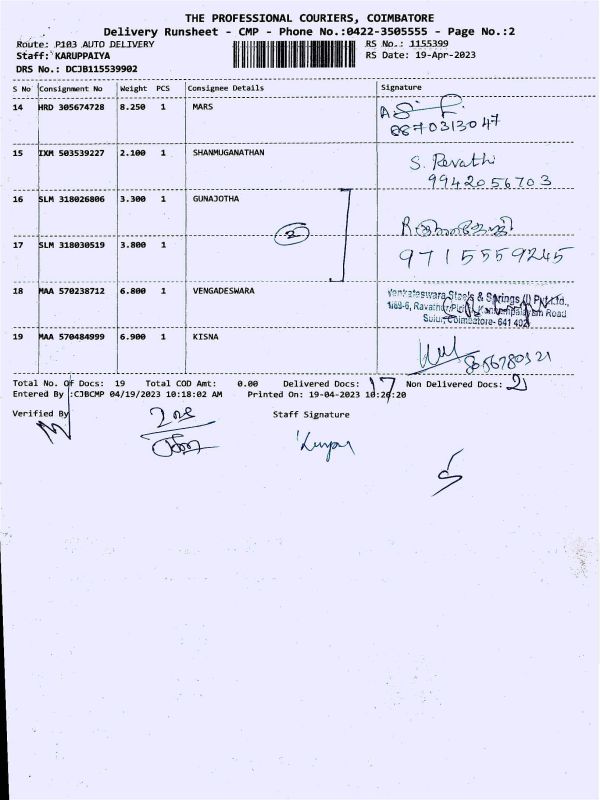 THE PROFESSIONAL COURIERS, COIMBATORE
Delivery Runsheet - CMP - Phone No.:0422-3505555 - Page No.:2
Route: P103 AUTO DELIVERY RS No.: 1155399
Staff: KARUPPAIYA RS Date: 19-Apr-2023
DRS No.: DCJB115539902
S No Consignment No Weight PCS Consignee Details Signature
14 HRD 305674728 8.250 1 MARS
8870313047
15 IXM 503539227 2.100 1 SHANMUGANATHAN S. Revathi
9942056703
16 SLM 318026806 3.300 1 GUNAJOTHA
2
17 SLM 318030519 3.800 1 9715559245
18 MAA 570238712 6.800 1 VENGADESWARA Venkateswara Steels & Springs (I) Pvt.Ltd.,
Road
Sulur, Coimbatore- 641 402
19 MAA 570484999 6.900 1 KISNA
Total No. Of Docs: 19 Total COD Amt: 0.00 Delivered Docs: 17 Non Delivered Docs: 2
Entered By :CJBCMP 04/19/2023 10:18:02 AM Printed On: 19-04-2023 10:26:20
Verified By Staff Signature